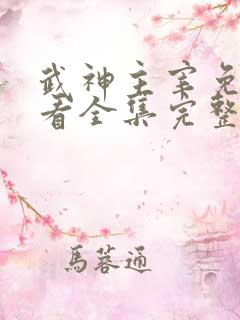 武神主宰免
看全集完整
馬蓉通